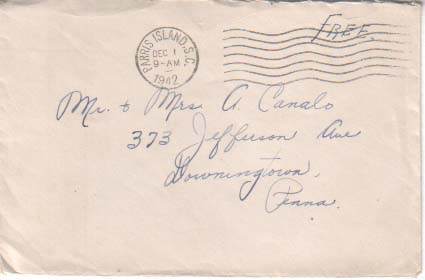 FREE.
PARRIS ISLAND, S.C.
DEC 1
9-AM
1942
Mr. & Mrs. A. Canalo
373 Jefferson Ave
Downingtown,
Penna.